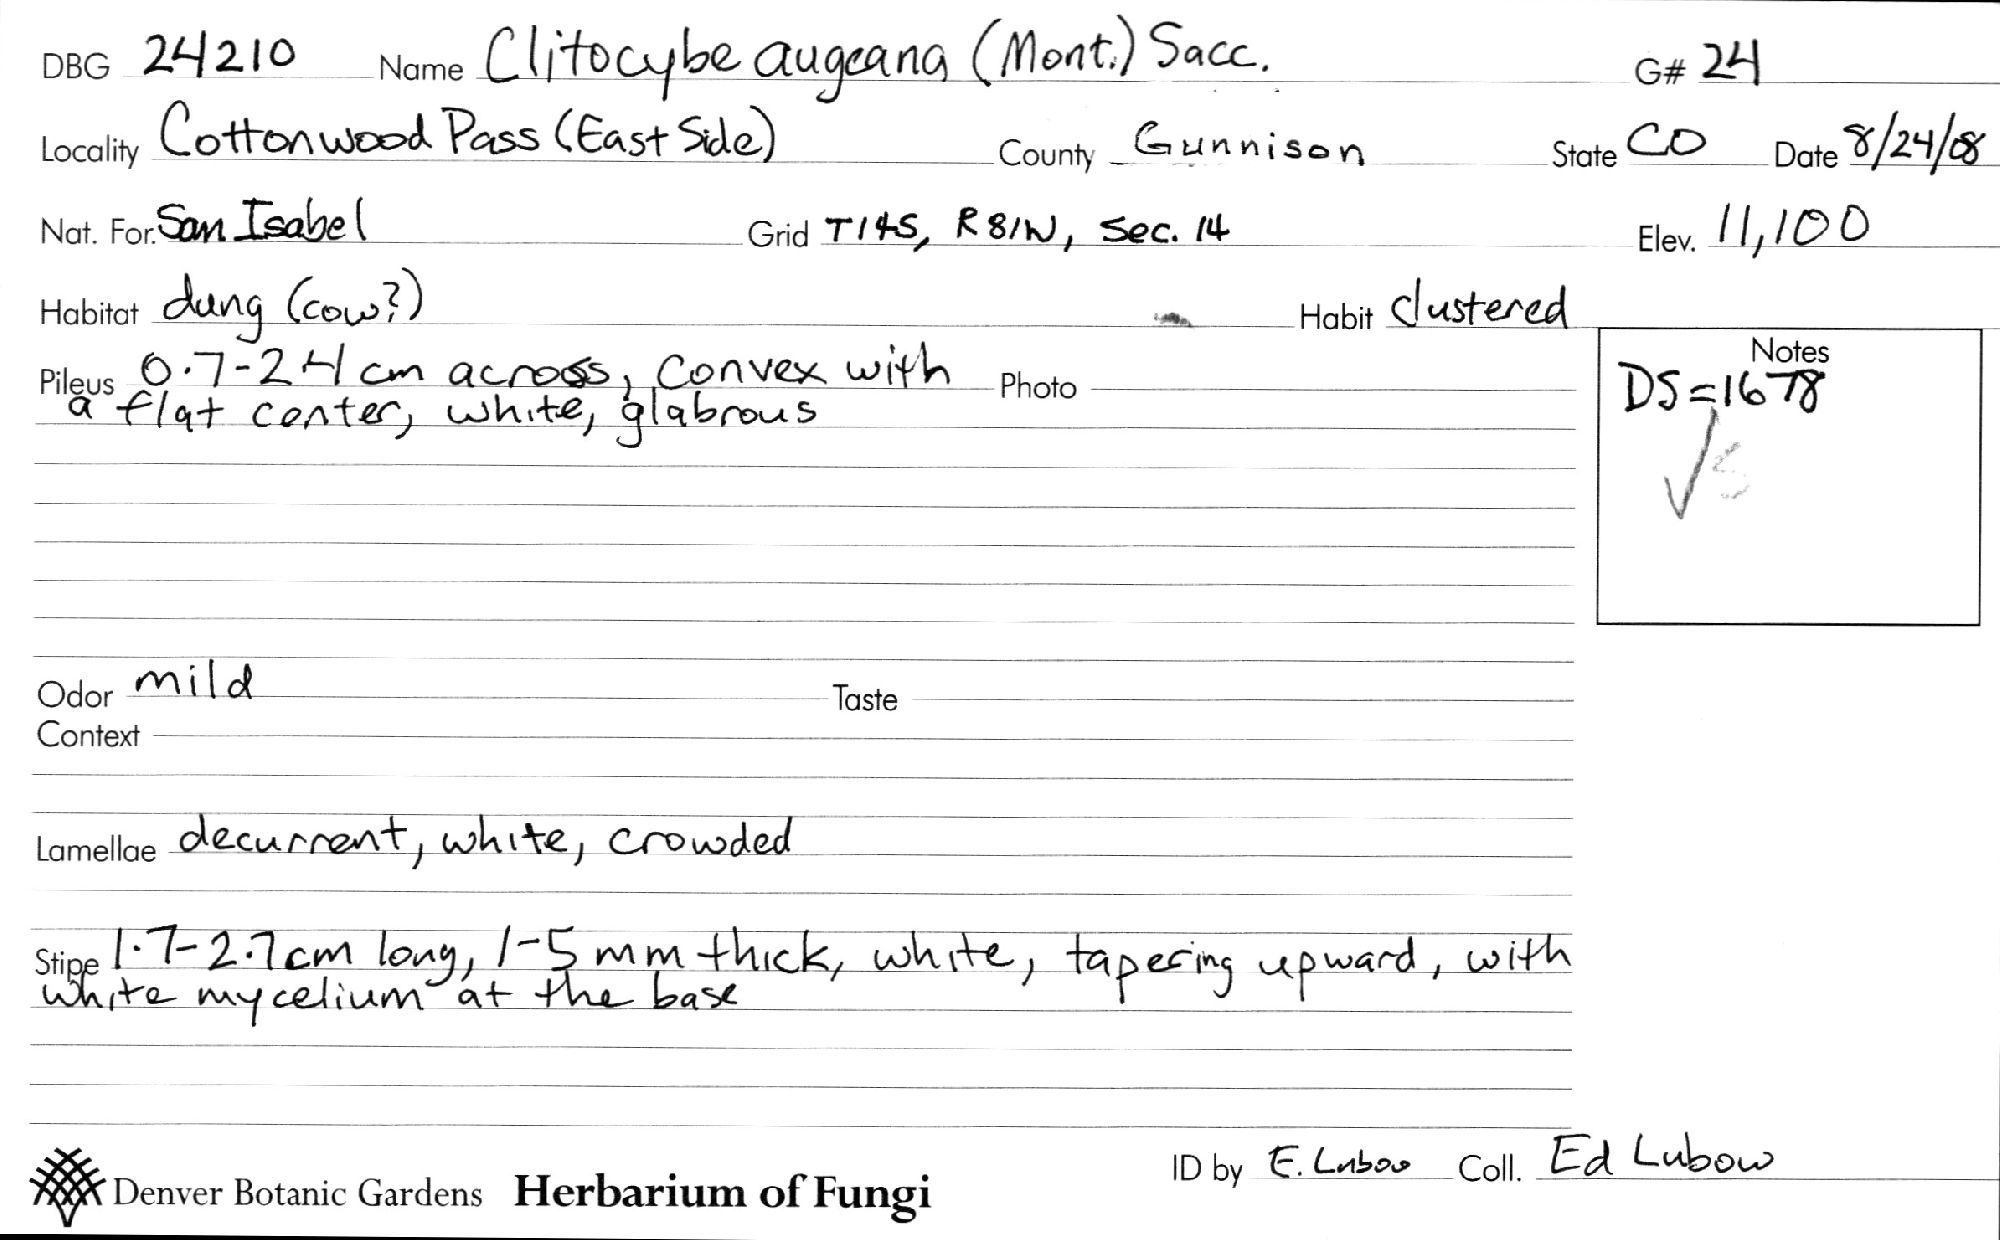 DBG 24210 Name Clitocybe augeana (Mont.) Sacc. G# 24
Locality Cottonwood Pass (East Side) County Gunnison State CO Date 8/24/08
Nat. For. San Isabel Grid T14S, R81W, Sec. 14 Elev. 11,100
Habitat dung (cow?) Habit clustered
Pileus 0.7-2.4 cm across, convex with Photo
a flat center, white, glabrous
Notes
DS=1678
Odor mild Taste
Context
Lamellae decurrent, white, crowded
Stipe 1.7-2.7cm long, 1-5 mm thick, white, tapering upward, with
white mycelium at the base
ID by E. Lubow Coll. Ed Lubow
Denver Botanic Gardens Herbarium of Fungi